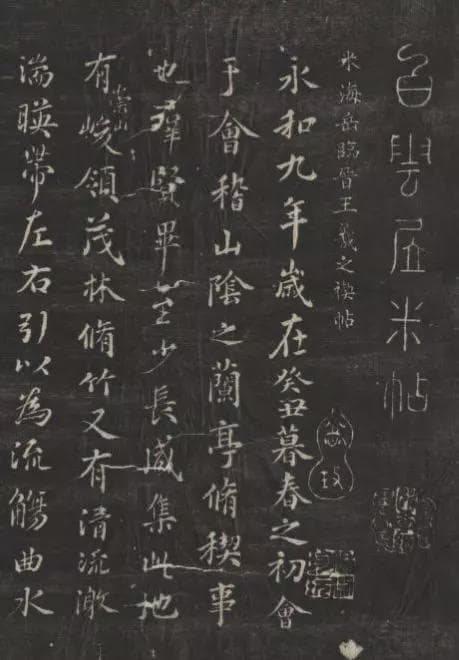 白雲居米帖
米海岳臨晉王羲之禊帖
永和九年歲在癸丑暮春之初會
于會稽山陰之蘭亭脩禊事
也羣賢畢至少長咸集此地
有崇山峻領茂林脩竹又有清流激
湍暎帶左右引以為流觴曲水